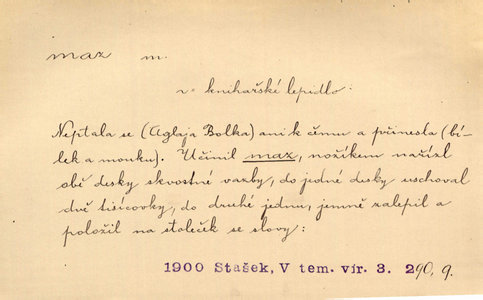 maz m.
v. knihařské lepidlo:
Neptala se (Aglaja Bolka) ani k čemu a přinesla (bí-
lek a mouku). Učinil maz, nožíkem nařízl
obě desky skvostné vazby, do jedné desky uschoval
dvě tisícovky, do druhé jednu, jemně zalepil a
položil na stoleček se slovy:
1900 Stašek, V tem. vír. 3. 290, 9.